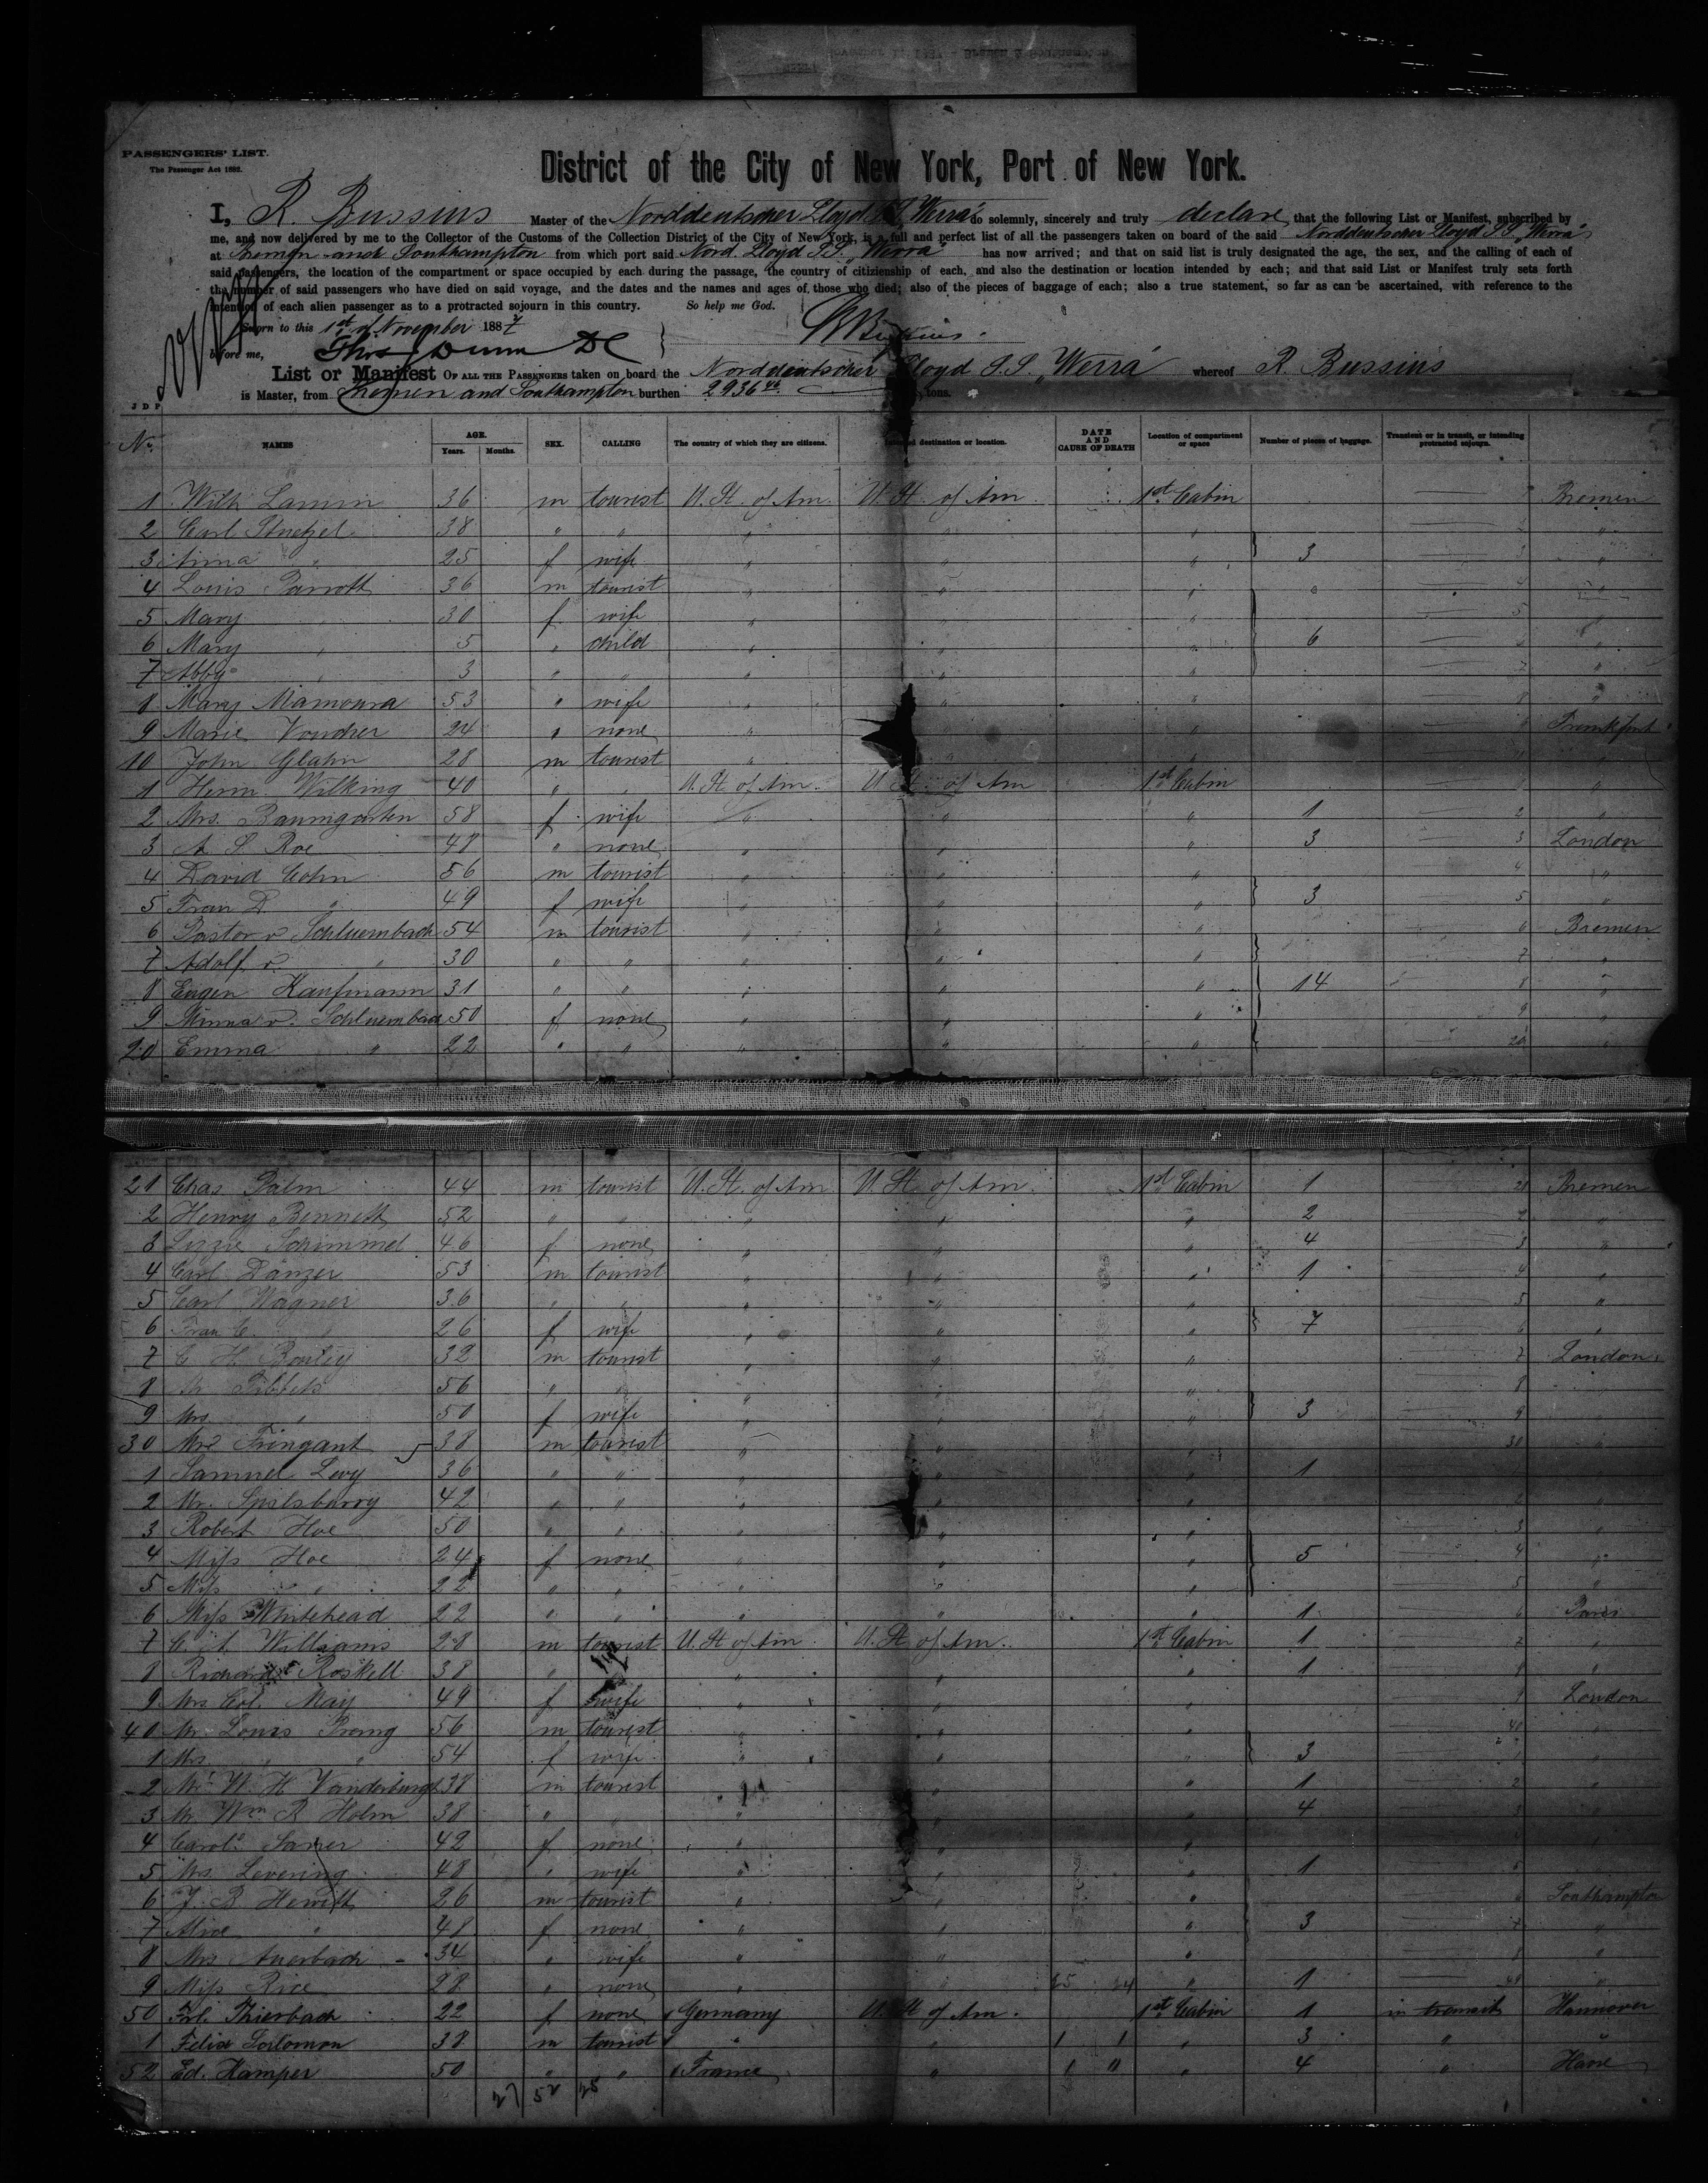 PASSENGERS' LIST.
The Passenger Act 1882.
District of the City of New York, Port of New York.
I, R. Bussius Master of the Norddeutscher Lloyd S.S. „Werra" do solemnly, sincerely and truly declare that the following List or Manifest, subscribed by
me, and now delivered by me to the Collector of the Customs of the Collection District of the City of New York, is a full and perfect list of all the passengers taken on board of the said Norddeutscher Lloyd S.S. „Werra"
at Bremen and Southampton from which port said Nord. Lloyd S.S. „Werra" has now arrived; and that on said list is truly designated the age, the sex, and the calling of each of
said passengers, the location of the compartment or space occupied by each during the passage, the country of citizienship of each, and also the destination or location intended by each; and that said List or Manifest truly sets forth
the number of said passengers who have died on said voyage, and the dates and the names and ages of those who died; also of the pieces of baggage of each; also a true statement, so far as can be ascertained, with reference to the
intention of each alien passenger as to a protracted sojourn in this country. So help me God.
Sworn to this 1st of November 1887
before me,
List or Manifest OF ALL THE PASSENGERS taken on board the Norddeutscher Lloyd S.S. „Werra" whereof R. Bussius
is Master, from Bremen and Southampton burthen 2936 tons.
J D P
No. NAMES AGE. Years. Months. SEX. CALLING The country of which they are citizens. destination or location. DATE AND CAUSE OF DEATH Location of compartment or space Number of pieces of baggage. Transient or in transit, or intending protracted sojourn.
1 Wilh. Lamm 36 m tourist U. St. of Am. U. St. of Am 1st Cabin 1 Bremen
2 Carl 38 " " " " " 2 "
3 Anna " 25 f wife " " " 3 3 "
4 Louis Parrott 36 m tourist " " " 4 "
5 Mary 30 f wife " " " 5
6 Mary " 5 " child " " " 6 6 "
7 Abby " 3 " " " " " 7 "
8 Mary Mamoura 53 " wife " " " 8 "
9 Marie Voucher 24 " none " " " 9 Frankfurt
10 John Glahn 28 m tourist " " "
1 Herm. Wilking 40 " " U. St. of Am. U. St. of Am 1st Cabin 1 "
2 Mrs. Baumgarten 58 f wife " " " 1 2 "
3 A. S. Roe 48 " none " " " 3 3 London
4 David Cohn 56 m tourist " " " 4 "
5 Frau D. " 49 f wife " " " 3 5 "
6 Pastor v. Schluembach 54 m tourist " " " 6 Bremen
7 Adolf v. " 30 " " " " " 7 "
8 Eugen Kaufmann 31 " " " " " 14 8 "
9 Minna v. Schluembach 50 f none " " " 9 "
20 Emma " 22 " " " " " 20 "
21 Chas Palm 44 m tourist U. St. of Am U. St. of Am. 1st Cabin 1 21 Bremen
2 Henry Bennett 52 " " " " " 2 2 "
3 Lizzie Schimmel 46 f none " " " 4 3 "
4 Carl Dänzer 53 m tourist " " " 1 4 "
5 Carl Wagner 36 " " " " " 5 "
6 Frau C. " 26 f wife " " " 7 6 "
7 C. H. 32 m tourist " " " 7 London
8 Mr Tibbets 56 " " " " " 8
9 Mrs " 50 f wife " " " 3 9 "
30 Mr Fringant 38 m tourist " " 30 "
1 Samuel Levy 36 " " " " 1
2 Mr. Spilsburry 42 " " " " " 2 "
3 Robert Hoe 50 " " " " " 3 "
4 Miss Hoe 24 f none " " " 5 4 "
5 Miss " 22 " " " " " 5 "
6 Miss Whitehead 22 " " " " " 1 6 Paris
7 C. A. Williams 28 m tourist U. St of Am. U. St. of Am. 1st Cabin 1 7 "
8 Richard Roskell 38 " " " " 1 8 "
9 Mrs Col. May 49 f wife " " " 9 London
40 Mr Louis Prang 56 m tourist " " " 40 "
1 Mrs " " 54 f wife " " " 3 1 "
2 Mr W. H. Vanderburgh 38 m tourist " " " 1 2 "
3 Mr Wm R. Holm 38 " " " " 4 3 "
4 Carol. 42 f none " " "
5 Mrs. Levering 48 " wife " " " 1 5 "
6 J. B. Hewitt 26 m tourist " " " 6 Southampton
7 Alice " 48 f none " " " 3 7 "
8 Mrs Auerbach 34 " wife " " " 8 "
9 Miss Rice 28 " none " " " 1 49 "
50 Frl. Thierbach 22 f none Germany U. St of Am. 1st Cabin 1 in transit Hannover
1 Felix Solomon 38 m tourist " " 1 1 " 3 " "
52 Ed. Kamper 50 " " France " 1 " " 4 " Havre
27 52 25